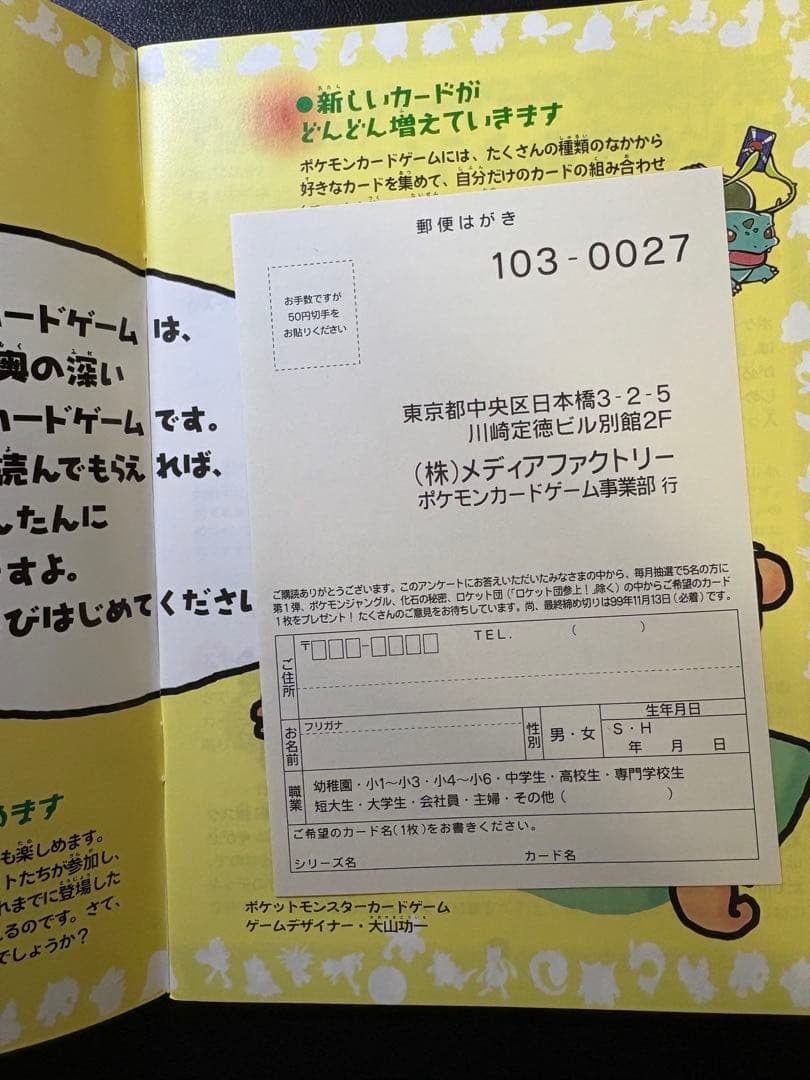 ードゲームは、
奥の深い
カードゲームです。
読んでもらえれば、
んたんに
すよ。
びはじめてください
めます
も楽しめます。
トたちが参加し、
れまでに登場した
るのです。さて、
でしょうか?
●新しいカードが
どんどん増えていきます
ポケモンカードゲームには、たくさんの種類のなかから
好きなカードを集めて、自分だけのカードの組み合わせ
郵便はがき
103-0027
お手数ですが
50円切手を
お貼りください
東京都中央区日本橋3-2-5
川崎定徳ビル別館2F
(株)メディアファクトリー
ポケモンカードゲーム事業部 行
ご購読ありがとうございます。このアンケートにお答えいただいたみなさまの中から、毎月抽選で5名の方に
第1弾、ポケモンジャングル、化石の秘密、ロケット団(「ロケット団参上!」除く)の中からご希望のカード
1枚をプレゼント!たくさんのご意見をお待ちしています。尚、最終締め切りは99年11月13日(必着)です。
ご住所 〒□□□-□□□□ TEL. ( )
お名前 フリガナ 性別 男・女 生年月日 S・H 年 月 日
職業 幼稚園・小1〜小3・小4〜小6・中学生・高校生・専門学校生
短大生・大学生・会社員・主婦・その他( )
ご希望のカード名(1枚)をお書きください。
シリーズ名 カード名
ポケットモンスターカードゲーム
ゲームデザイナー・大山功一